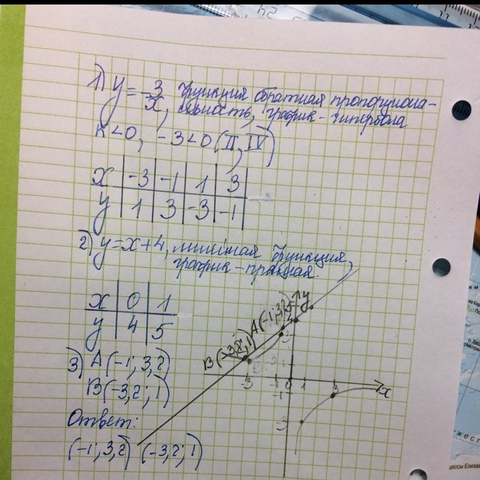 1) y = -3/x, функция обратная пропорциона-
льность, график - гипербола
k < 0, -3 < 0 (II, IV)
x | -3 | -1 | 1 | 3
y | 1 | 3 | -3 | -1
2) y = x + 4, линейная функция,
график - прямая.
x | 0 | 1
y | 4 | 5
3) A (-1; 3,2)
B (-3,2; 1)
Ответ:
(-1; 3,2) (-3,2; 1)
B (-3,2; 1) A (-1; 3,2) y
4
-3 -1 0 1 3 x
-1
-3